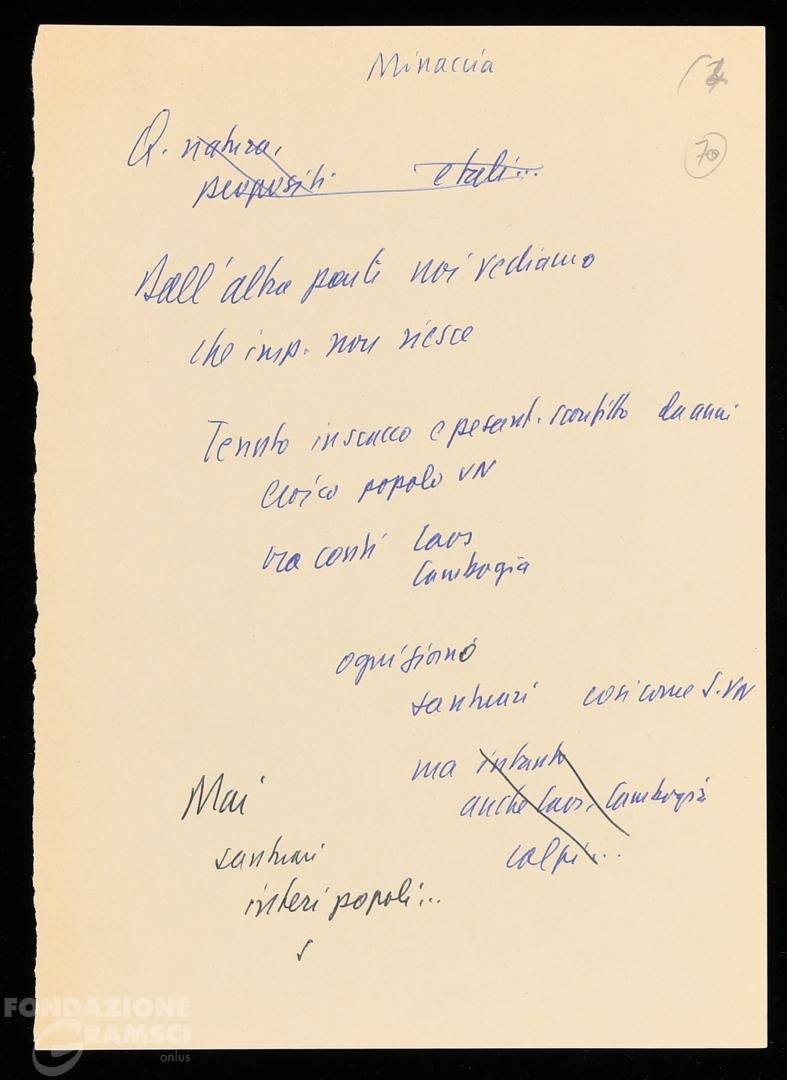 Minaccia
70
Q. natura,
propositi. e tali...
Dall'altra parte noi vediamo
che imp. non riesce
Tenuto in scacco e pesant. sconfitto da anni
eroico popolo VN
ora conti Laos
Cambogia
ogni giorno
santuari così come S. VN
ma intanto
anche Laos, Cambogia
colpi...
Mai
santuari
interi popoli...
FONDAZIONE
GRAMSCI
onlus